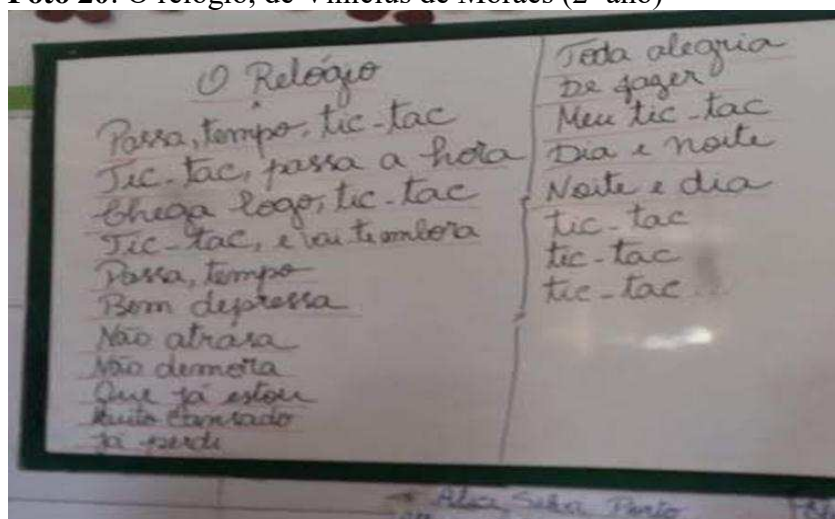 Foto 20: O relógio, de Vinicius de Moraes (2º ano)
O Relógio
Passa, tempo, tic-tac
Tic-tac, passa a hora
Chega logo, tic-tac
Tic-tac, e vai-te embora
Passa, tempo
Bem depressa
Não atrasa
Não demora
Que já estou
Muito cansado
Já perdi
Toda alegria
De fazer
Meu tic-tac
Dia e noite
Noite e dia
tic-tac
tic-tac
tic-tac...
Silva